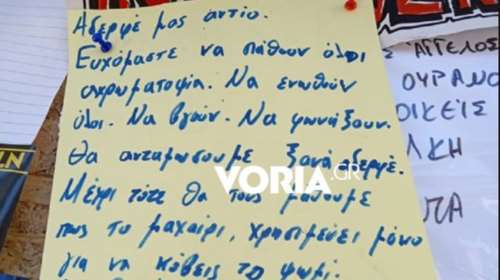 Αδερφέ μας αντίο.
Ευχόμαστε να πάθουν όλοι
αχρωματοψία. Να ενωθούν
όλοι. Να βγουν. Να φωνάξουν.
Θα ανταμώσουμε ξανά δερφέ.
Μέχρι τότε θα τους μάθουμε
πως το μαχαίρι, χρησιμεύει μόνο
για να κόβεις το ψωμί.
VORIA.GR
ΑΓΓΕΛΟΣ
ΟΥΡΑΝ
ΟΙΚΕΙΣ